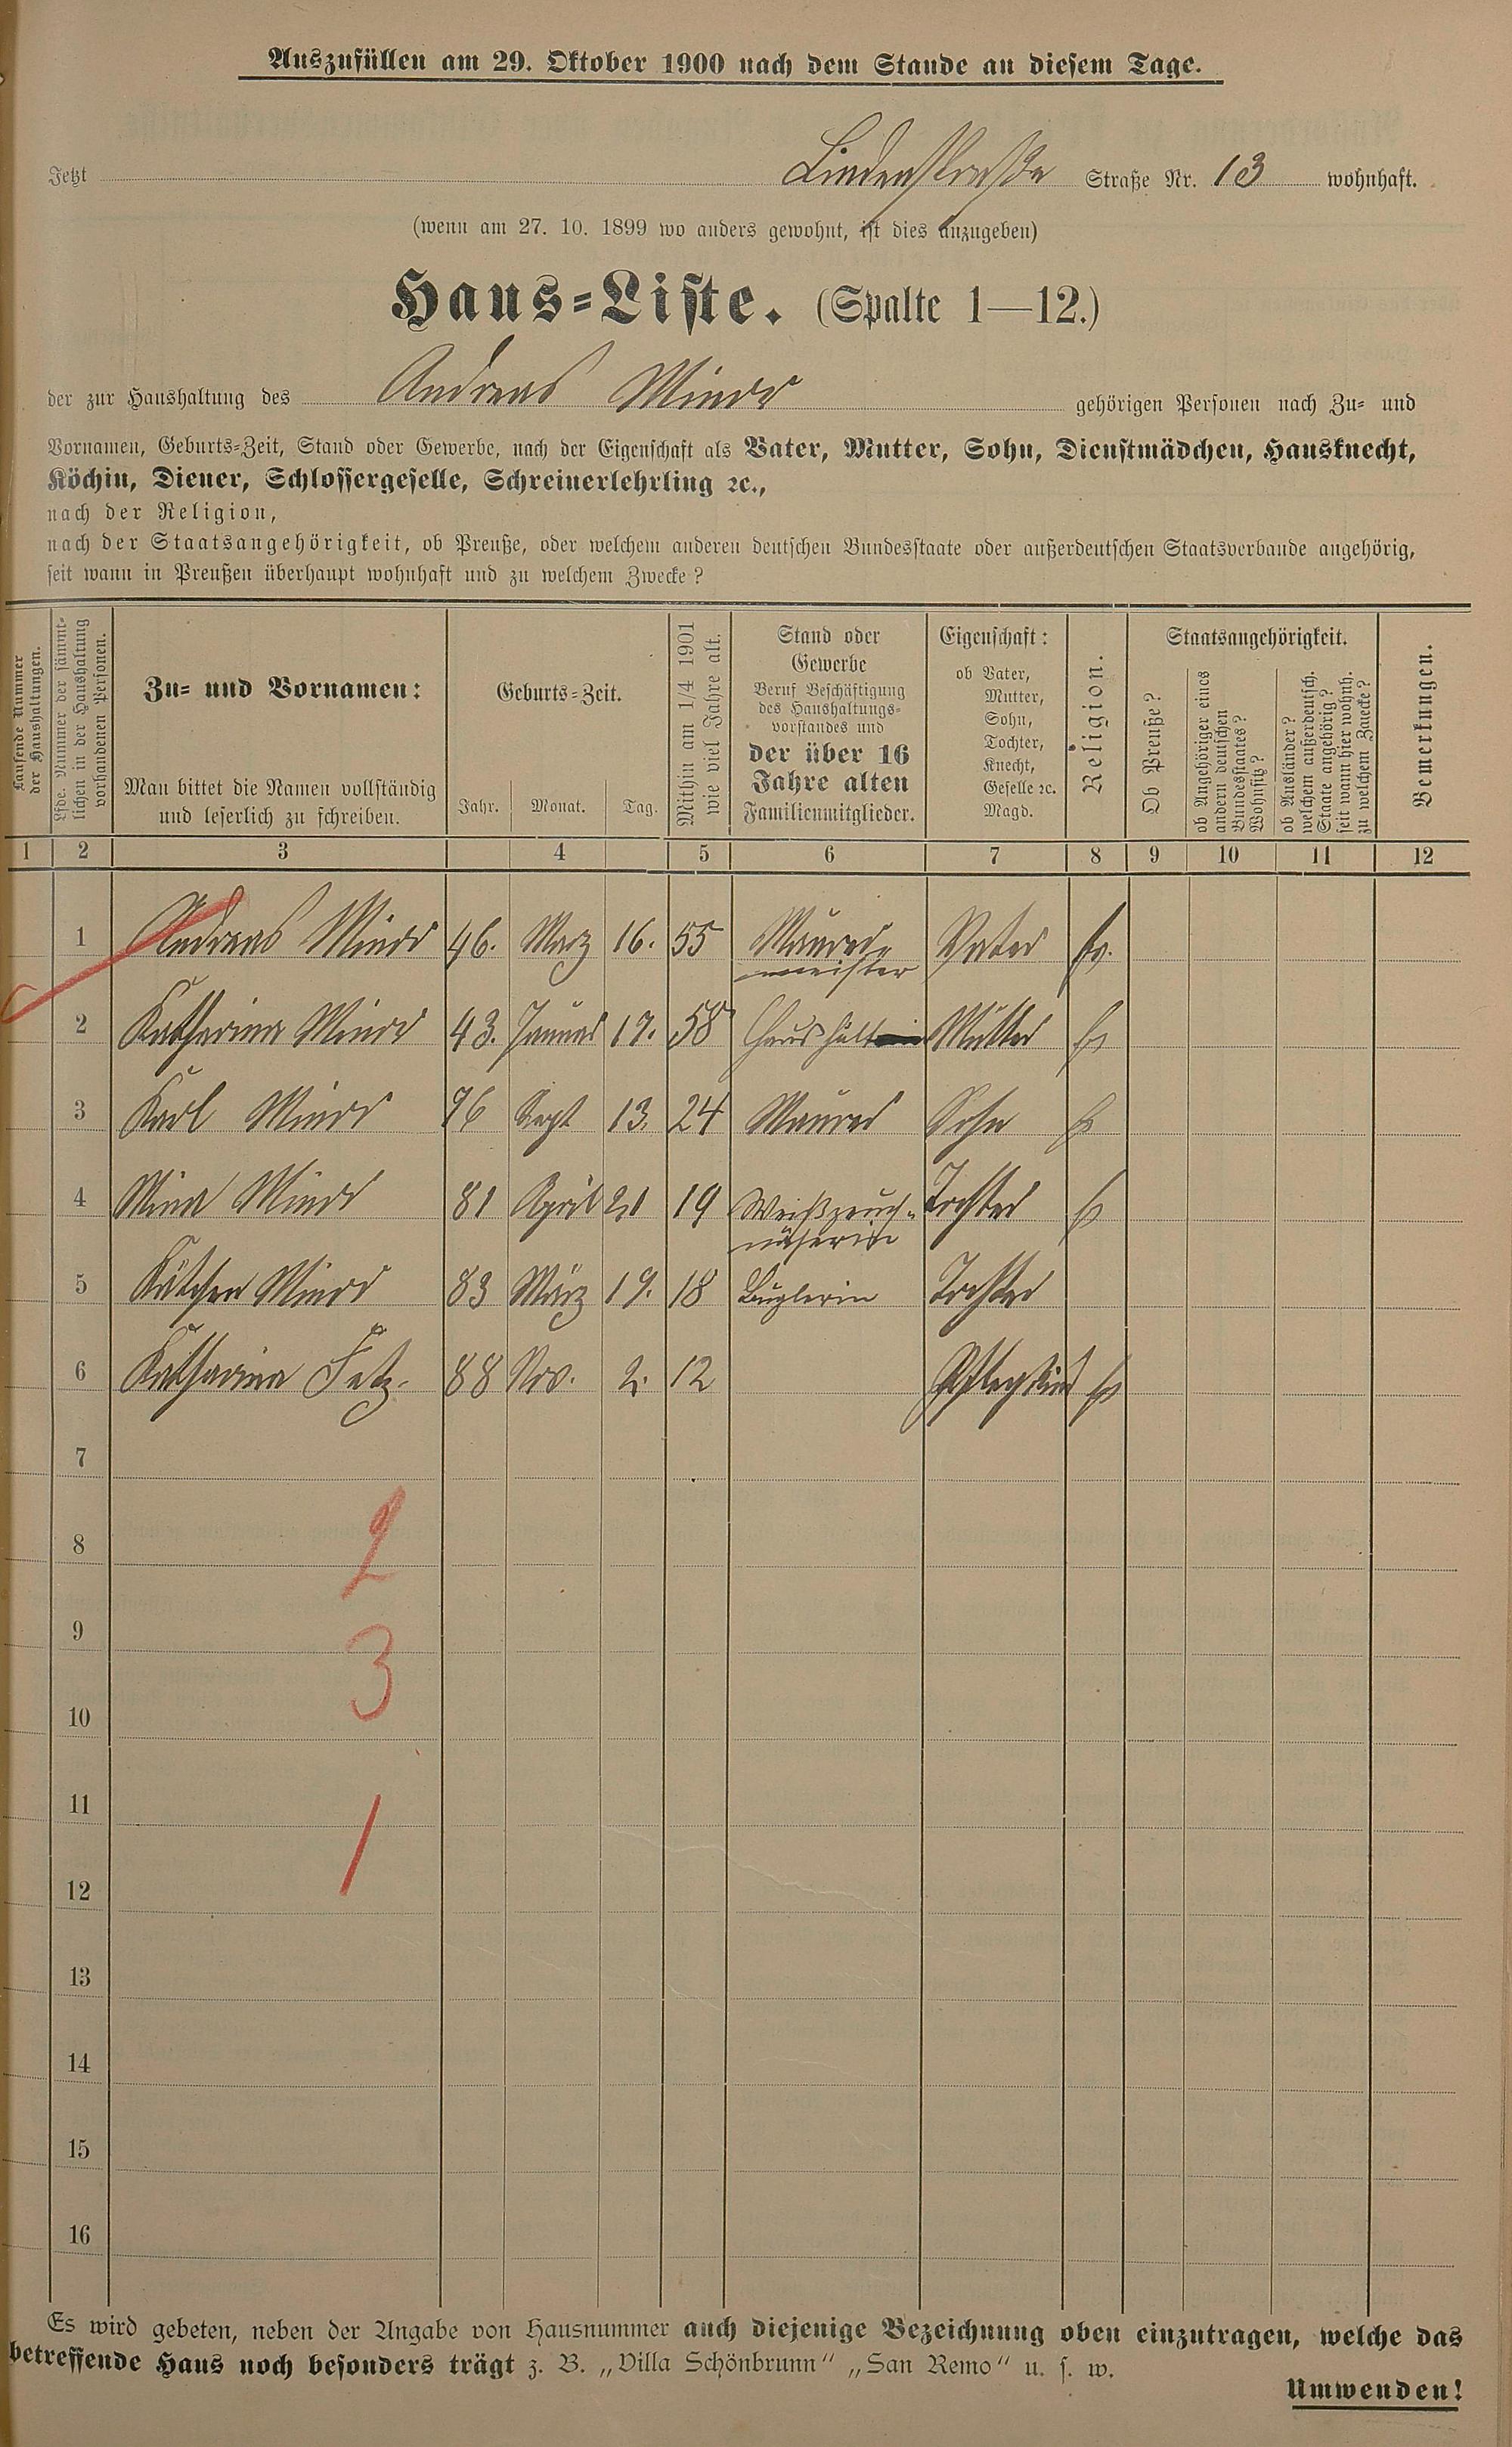 Auszufüllen am 29. Oktober 1900 nach dem Stande an diesem Tage.
Jetzt Lindenstraße Straße Nr. 13 wohnhaft.
(wenn am 27. 10. 1899 wo anders gewohnt, ist dies anzugeben)
Haus-Liste. (Spalte 1—12.)
der zur Haushaltung des Andreas Minor gehörigen Personen nach Zu- und
Vornamen, Geburts-Zeit, Stand oder Gewerbe, nach der Eigenschaft als Vater, Mutter, Sohn, Dienstmädchen, Hausknecht,
Köchin, Diener, Schlossergeselle, Schreinerlehrling ꝛc.,
nach der Religion,
nach der Staatsangehörigkeit, ob Preuße, oder welchem anderen deutschen Bundesstaate oder außerdeutschen Staatsverbande angehörig,
seit wann in Preußen überhaupt wohnhaft und zu welchem Zwecke?
Laufende Nummer der Haushaltungen.
Lfde. Nummer der sämmtlichen in der Haushaltung vorhandenen Personen.
Zu- und Vornamen:
Man bittet die Namen vollständig
und leserlich zu schreiben.
Geburts-Zeit.
Jahr. Monat. Tag.
Mithin am 1/4 1901
wie viel Jahre alt.
Stand oder
Gewerbe
Beruf Beschäftigung
des Haushaltungs-
vorstandes und
der über 16
Jahre alten
Familienmitglieder.
Eigenschaft:
ob Vater,
Mutter,
Sohn,
Tochter,
Knecht,
Geselle ꝛc.
Magd.
Religion.
Staatsangehörigkeit.
Ob Preuße?
ob Angehöriger eines
andern deutschen
Bundesstaates?
Wohnsitz?
ob Ausländer?
welchem außerdeutsch.
Staate angehörig?
seit wann hier wohnh.
zu welchem Zwecke?
Bemerkungen.
1 2 3 4 5 6 7 8 9 10 11 12
1 Andreas Minor 46. Marz 16. 55 Maurer- Vater
meister
2 Katharina Minor 43. Januar 17. 58 Mutter
3 Karl Minor 76 Sept 13. 24 Maurer Sohn
4 Mina Minor 81 April 20 19 Weißzeuch- Tochter
näherin
5 Kätchen Minor 83 März 19. 18 Büglerin Tochter
6 Katharina Fetz. 88 Nov. 2. 12 Pflegkind
7
8
2
9
3
10
11
1
12
13
14
15
16
Es wird gebeten, neben der Angabe von Hausnummer auch diejenige Bezeichnung oben einzutragen, welche das
betreffende Haus noch besonders trägt z. B. „Villa Schönbrunn“ „San Remo“ u. s. w.
Umwenden!